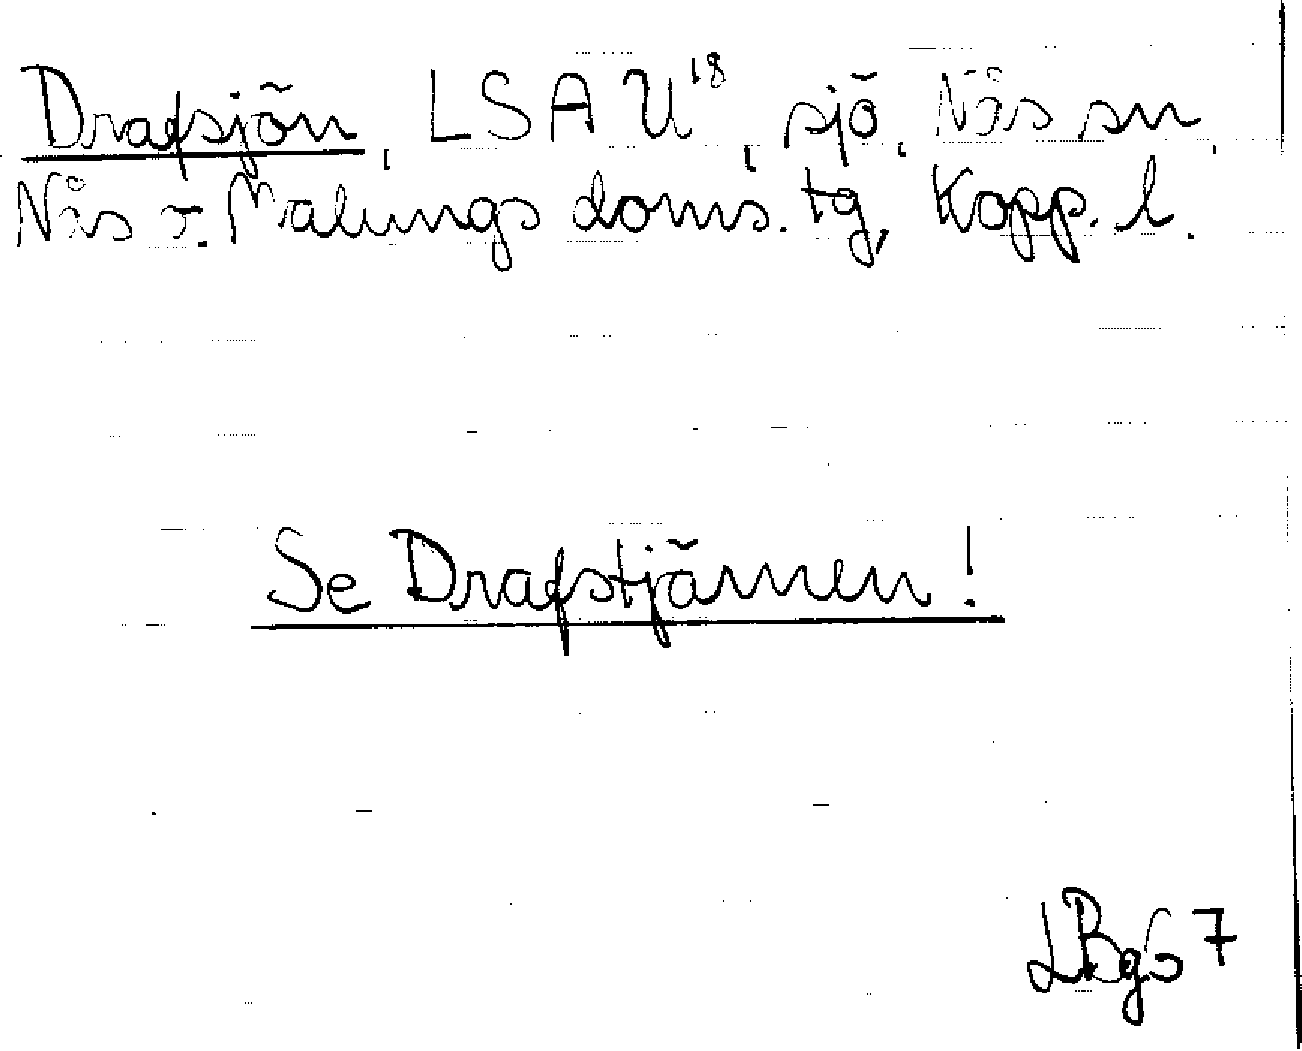 Drafsjön, LSA U¹⁸, sjö, Nås sn,
Nås o. Malungs doms. tg, Kopp. l.
Se Drafstjärnen!
LBg67